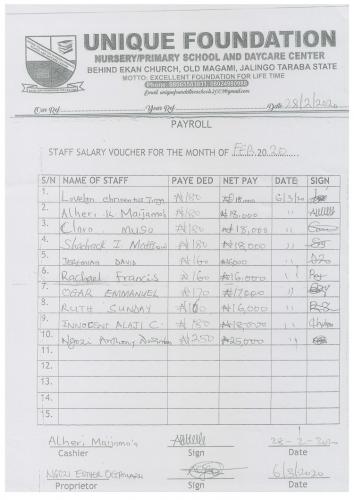 UNIQUE FOUNDATION
NURSERY/PRIMARY SCHOOL AND DAYCARE CENTER
BEHIND EKAN CHURCH, OLD MAGAMI, JALINGO TARABA STATE
MOTTO: EXCELLENT FOUNDATION FOR LIFE TIME
Our Ref Your Ref Date 28/2/2020
PAYROLL
STAFF SALARY VOUCHER FOR THE MONTH OF FEB. 20 20
S/N NAME OF STAFF PAYE DED NET PAY DATE SIGN
1. ₦180 ₦18,000 6/3/20
2. Alheri .K Maijama'a ₦180 ₦18,000 ''
3. Musa ₦180 ₦18,000 ''
4. Shadrack I. ₦180 ₦18,000 ''
5. JEREMIAH DAVID ₦160 ₦16000 ''
6. Rachael Francis ₦160 ₦16,000 ''
7. OGAR EMMANUEL ₦170 ₦17000 ''
8. RUTH SUNDAY ₦160 ₦16,000 ''
9. INNOCENT ALAJI C. ₦180 ₦18,000 ''
10. Ngozi Anthony ₦250 ₦25,000 ''
11.
12.
13.
14.
15.
Alheri Maijama'a 28-2-2020
Cashier Sign Date
NGOZI ESTHER 6/3/2020
Proprietor Sign Date